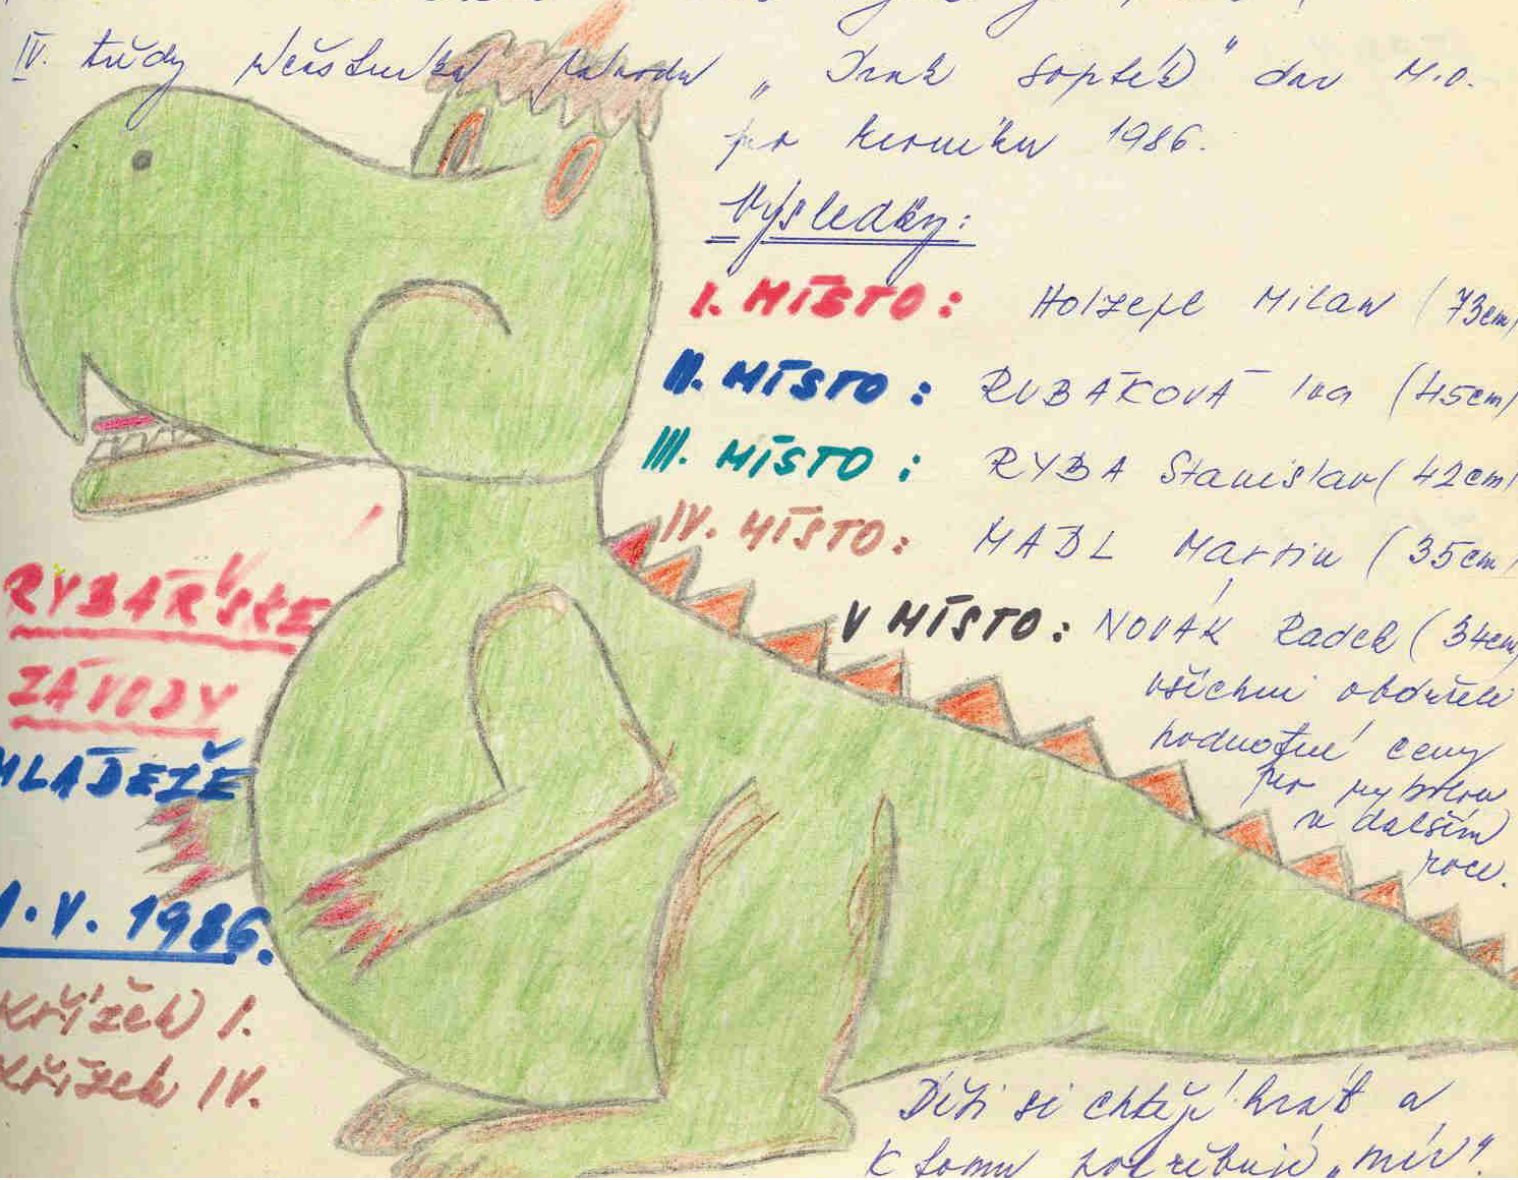 IV. třídy Weästurka pohodu „Drak Soptík" dar M.O.
pro kroniku 1986.
Výsledky:
I. MÍSTO: Holzepl Milan (73cm)
II. MÍSTO: RUBÁKOVÁ Iva (45cm)
III. MÍSTO: RYBA Stanislav (42cm)
IV. MÍSTO: MÁDL Martin (35cm)
V MÍSTO: NOVÁK Radek (34cm)
všichni obdrželi
hodnotné ceny
pro rybolov
v dalším
roce.
RYBÁŘSKÉ
ZÁVODY
MLÁDEŽE
1.V. 1986.
Křížek I.
Křížek IV.
Děti si chtějí hrát a
k tomu potřebují „mír"!